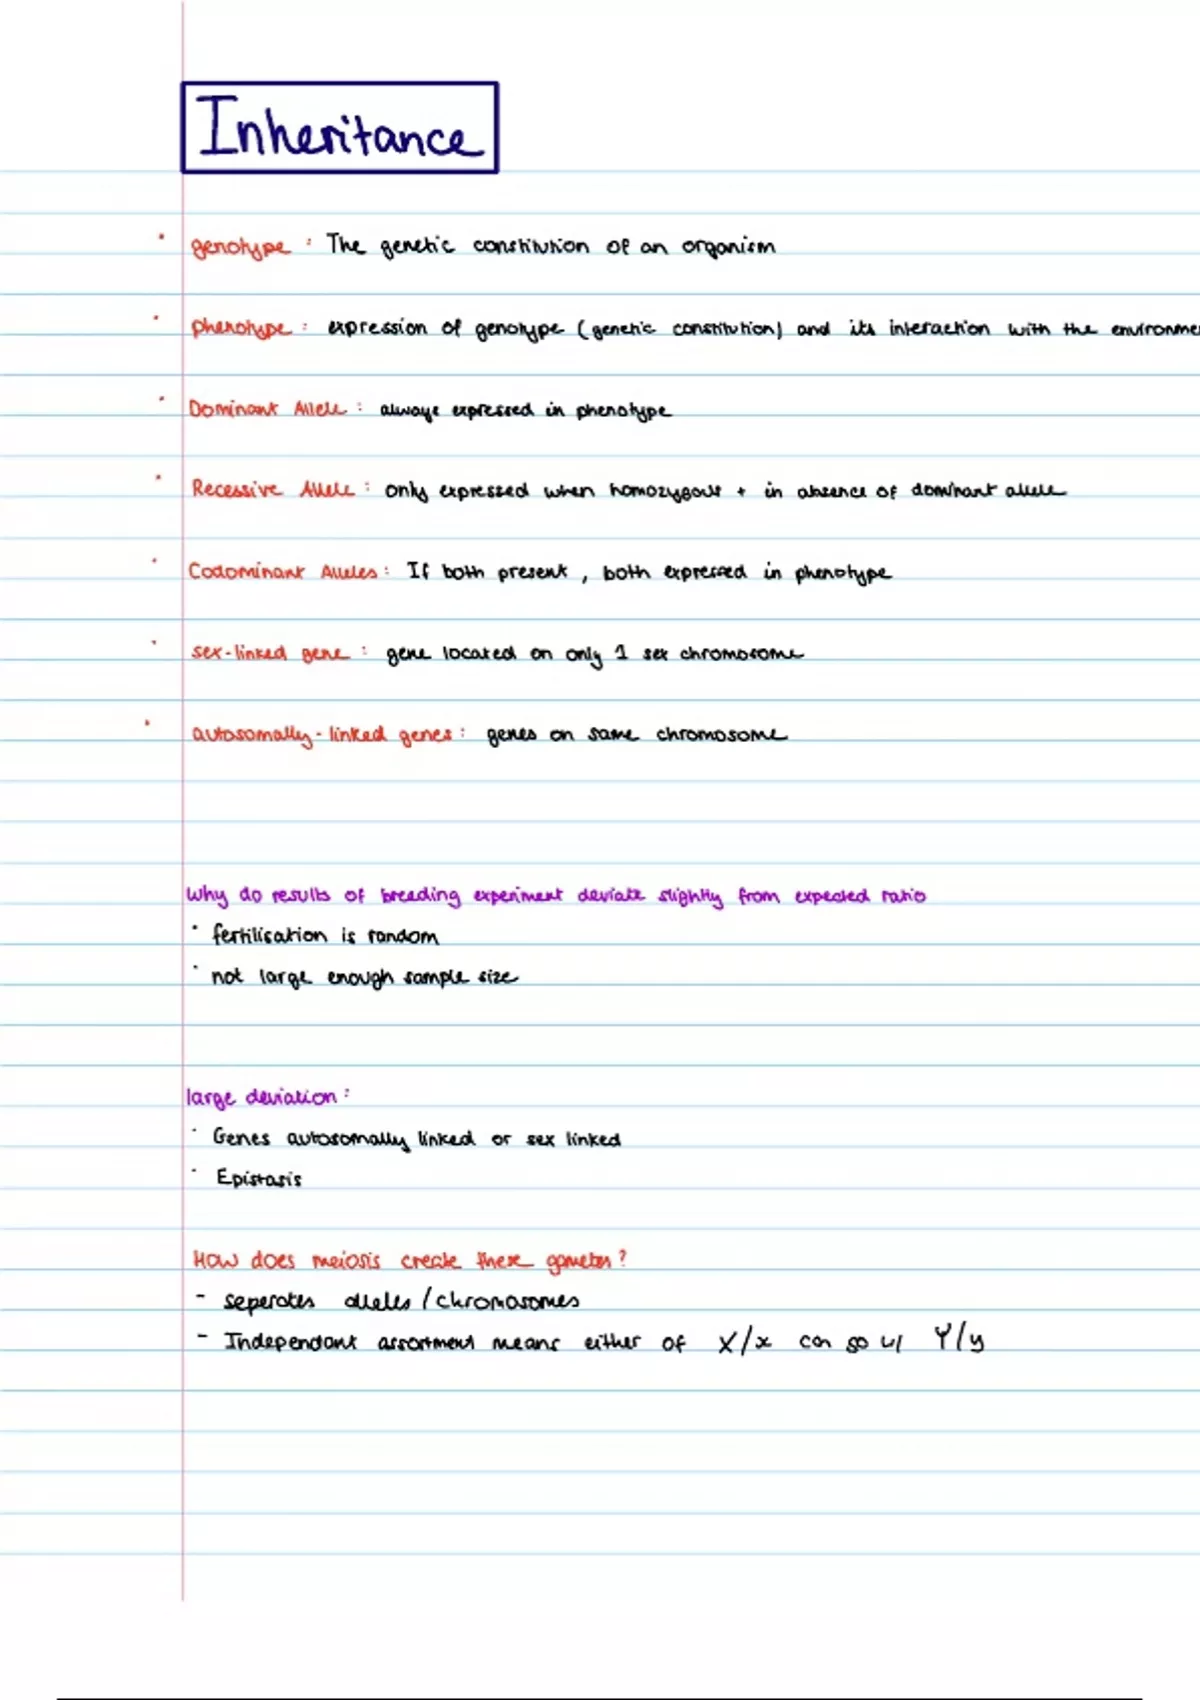 Inheritance
· genotype : The genetic constitution of an organism
· phenotype : expression of genotype (genetic constitution) and its interaction with the environme
· Dominant Allele : always expressed in phenotype
· Recessive Allele : only expressed when homozygous + in absence of dominant allele
· Codominant Alleles : If both present , both expressed in phenotype
· sex-linked gene : gene located on only 1 sex chromosome
· autosomally-linked genes : genes on same chromosome
Why do results of breeding experiment deviate slightly from expected ratio
· fertilisation is random
· not large enough sample size
large deviation :
· Genes autosomally linked or sex linked
· Epistasis
How does meiosis create these gametes ?
- seperates alleles / chromosomes
- Independant assortment means either of X/x can go w/ Y/y